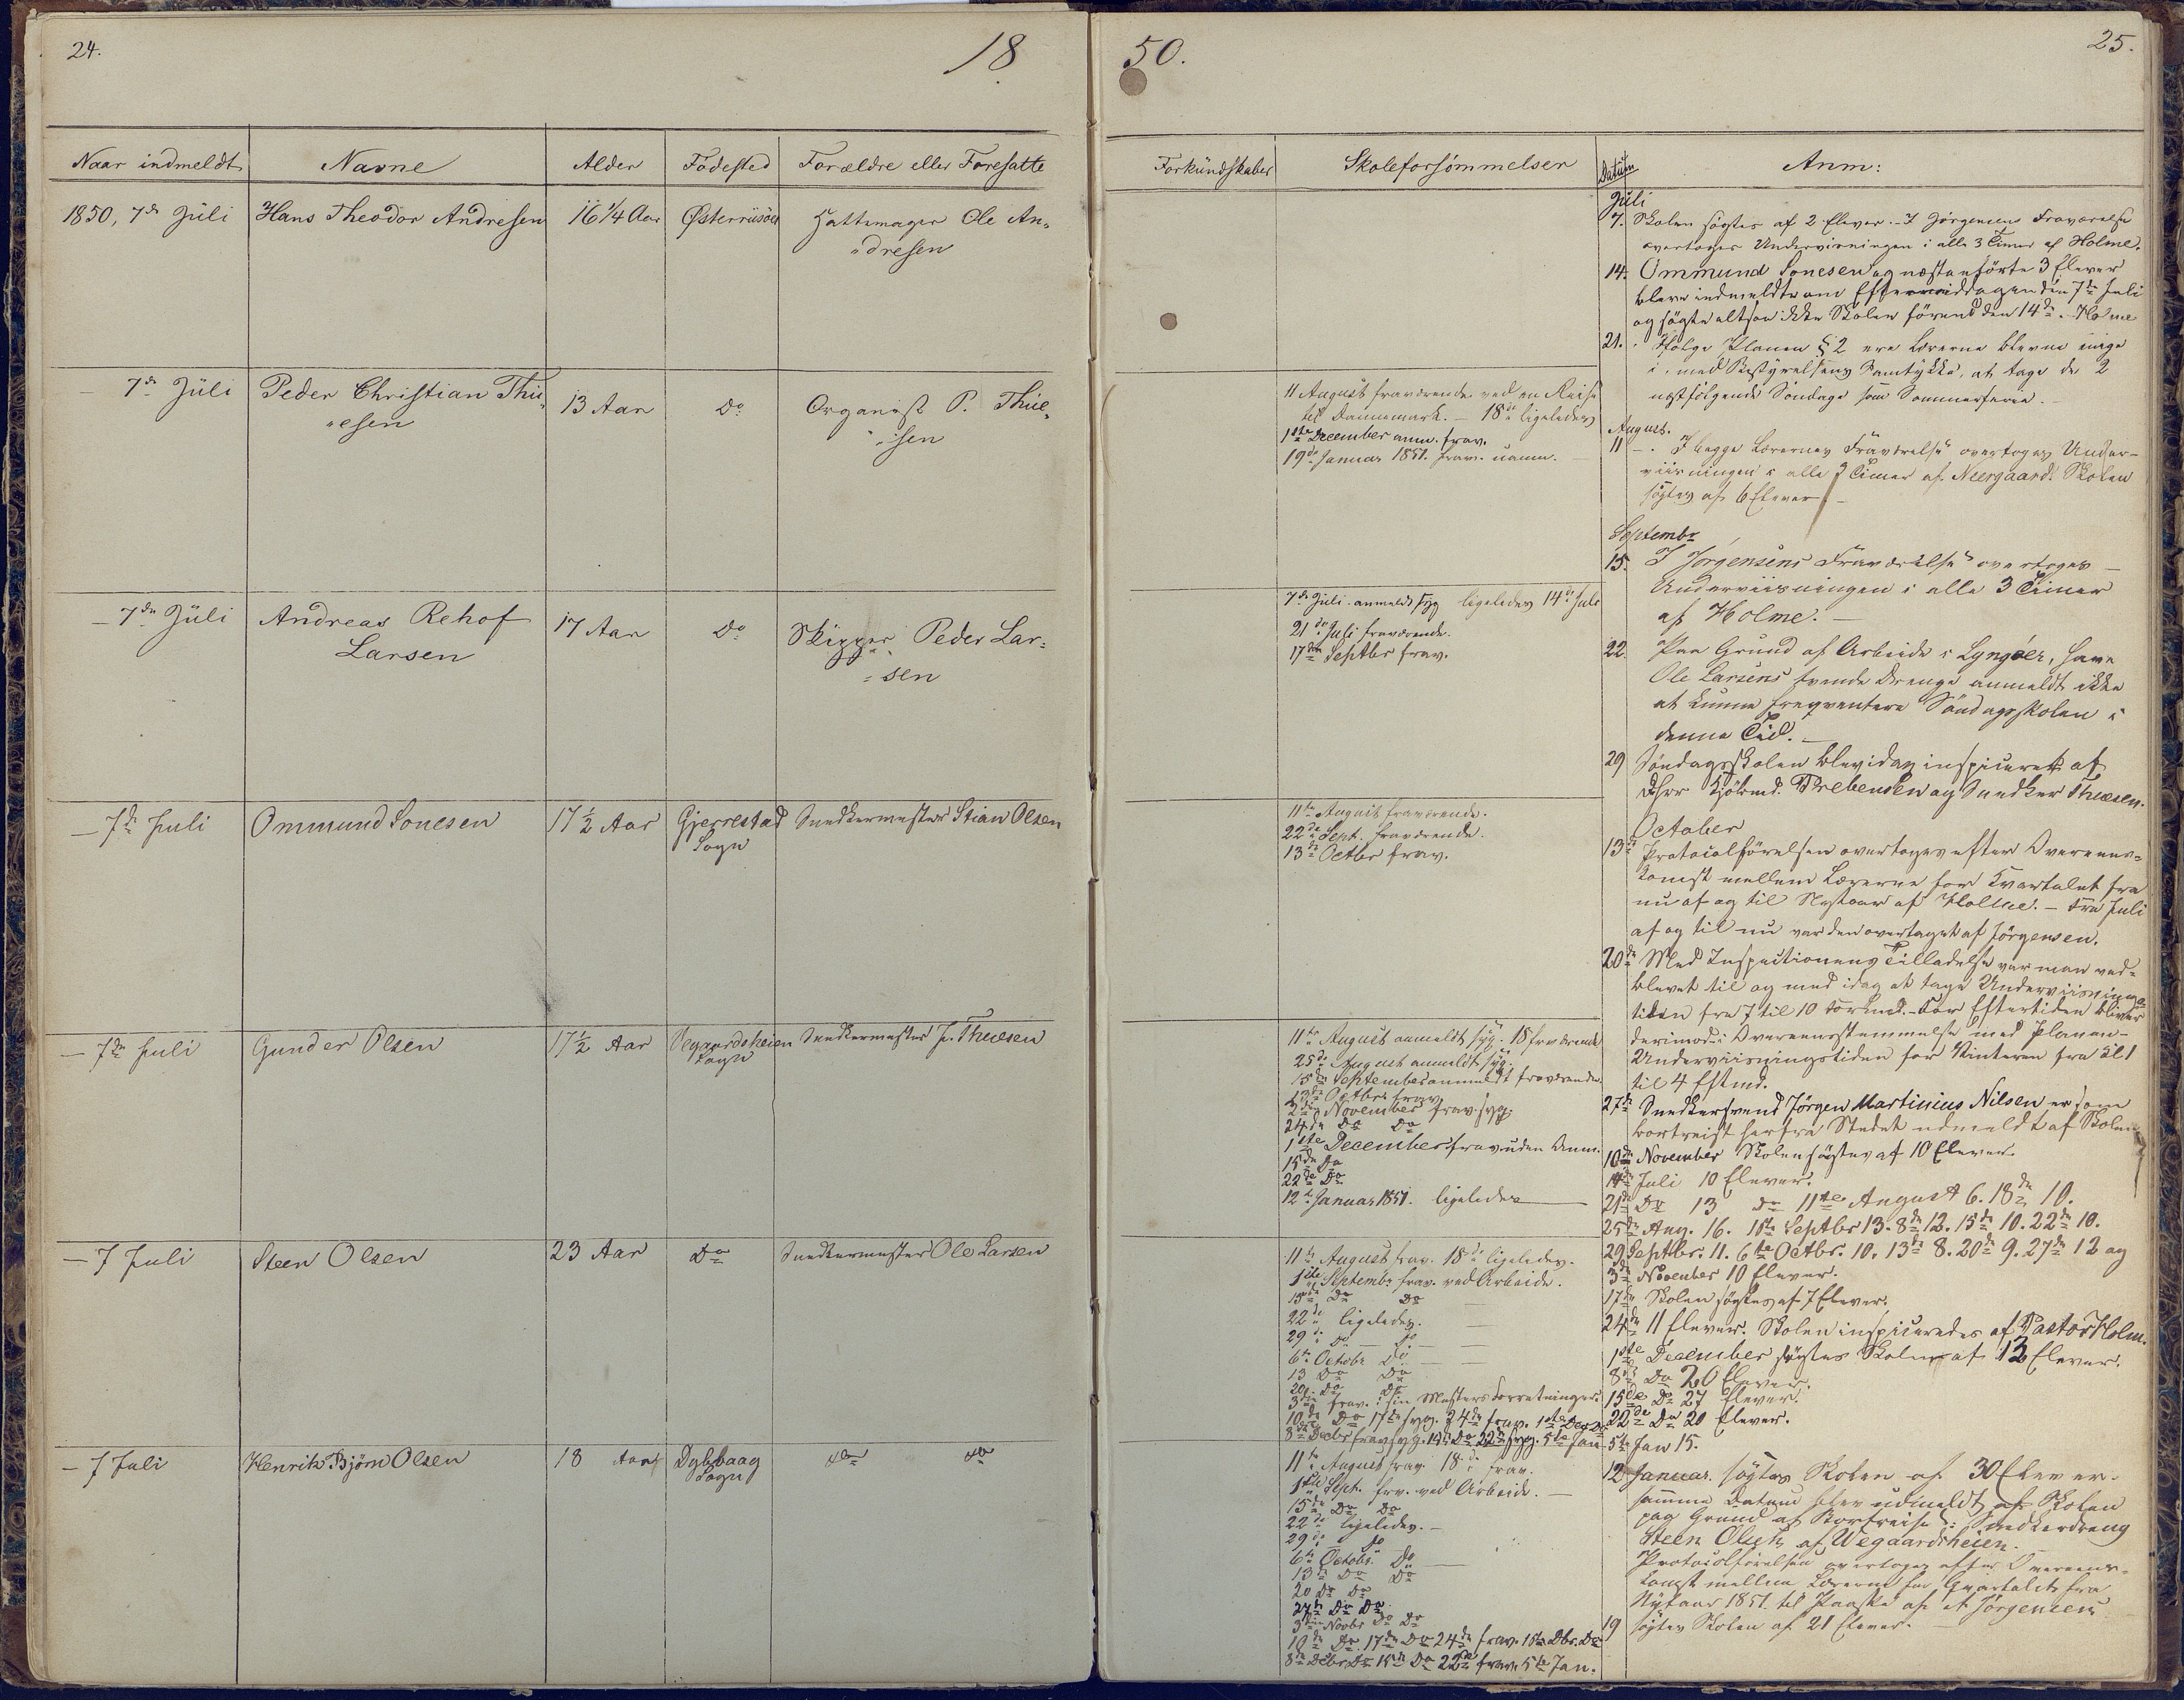 24.
18
50.
25.
Naar indmeldt
Navne
Alder
Födested
Forældre eller Foresatte
Forkundskaber
Skoleforsömmelser
Datum
Anm:
1850, 7de Juli
Hans Theodor Andresen
16 1/4 Aar
Østerriisöer
Hattemager Ole An-
dresen
– 7de Juli
Peder Christian Thu-
esen
13 Aar
Do
Organist P. Thue-
sen
11 August fraværende ved en Reise
til Dannemark. – 18de ligeledes
1ste December anm. frav.
19de Januar 1851. frav. uanm.
– 7de Juli
Andreas Rehof
Larsen
17 Aar
Do
Skipper Peder Lar-
sen
7de Juli anmeldt syg ligeledes 14de Juli
21de Juli fraværende.
17de Septbr frav.
– 7de Juli
Ommund Sonesen
17 1/2 Aar
Gjerrestad
Sogn
Snedkermester Stian Olsen
11te August fraværende.
22de Sept. fraværende.
13de Octbr frav.
– 7de Juli
Gunder Olsen
17 1/2 Aar
Vegaardsheien
Sogn
Snedkermester J. Thuesen
11te August anmeldt syg. 18 fraværende
25de August anmeldt syg.
15de September anmeldt fraværende.
13de Octbr frav.
3die November frav. syg.
24de Do Do
1ste December frav. uden Anm.
15de Do
22de Do
12te Januar 1851. ligeledes
– 7 Juli
Steen Olsen
23 Aar
Do
Snedkermester Ole Larsen
11te August frav. 18de ligeledes.
1ste Septembr frav. ved Arbeide.
15de Do Do
22de ligeledes.
29de Do Do
6te Octobr Do
13 Do Do
20. Do Do
3die frav. i sin Mesters Forretninger.
10de Do 17de syg. 24de frav. 1ste Dec Do
8de Decbr frav. syg. 15de Do 22de syg. 5te Jan.
– 7 Juli
Henrik Bjørn Olsen
18 Aar
Dybvaag
Sogn
Do Do
11te August frav. 18de frav.
1ste Sept. frv. ved Arbeide.
15de Do Do
22de ligeledes.
29de Do
6te Octobr. Do
13de Do Do
20 Do Do
27de Do Do
3die Novbr Do Do
10de Do. 17de Do 24de frav. 1ste Dbr. Do
8de Decbr Do 15de Do 22de frav. 5te Jan.
Juli
7. Skolen søgtes af 2 Elever. – I Jørgensens Fraværelse
overtoges Undervisningen i alle 3 Timer af Holme.
14. Ommund Sonesen og næstanførte 3 Elever
bleve indmeldte om Eftermiddagen den 7de Juli
og søgte altsaa ikke Skolen förend den 14de. Holme
21. Ifølge Planen § 2 ere Lærerne blevne enige
i, med Bestyrelsens Samtykke, at tage de 2
næstfølgende Søndage som Sommerferie. –
August.
11 –. I begge Lærernes Fraværelse overtoges Under-
viisningen i alle 3 Timer af Neergaard. Skolen
søgtes af 6 Elever. –
Septembr
15. I Jörgensens Fraværelse overtoges
Underviisningen i alle 3 Timer
af Holme. –
22. Paa Grund af Arbeide i Lyngöer, have
Ole Larsens tvende Drenge anmeldt ikke
at kunne frequentere Søndagsskolen i
denne Tid. –
29 Søndagsskolen blev idag inspiceret af
DHrr Kjöbmd. Prebensen og Snedker Thuesen.
October
13de Protocolførelsen overtoges efter Overeens-
komst mellem Lærerne for Kvartalet fra
nu af og til Nytaar af Holme. – Fra Juli
af og til nu var den overtaget af Jörgensen.
20de Med Inspectionens Tilladelse var man ved-
blevet til og med idag at tage Underviisnings-
tiden fra 7 til 10 Formd. – For Eftertiden bliver
derimod i Overeensstemmelse med Planen –
Underviisningstiden for Vinteren fra Kl 1
til 4 Eftmd.
27de Snedkersvend Jörgen Martinius Nilsen er som
bortreist herfra Stedet udmeldt af Skolen
10de November Skolen søgtes af 10 Elever.
14de Juli 10 Elever.
21de Do 13 Do 11te August 6. 18de 10.
25de Aug. 16. 1ste Septbr 13. 8de 12. 15de 10. 22de 10.
29 Septbr. 11. 6te Octbr. 10. 13de 8. 20de 9. 27de 12 og
3die November 10 Elever.
17de Skolen søgtes af 7 Elever.
24de 11 Elever. Skolen inspiceredes af Pastor Holm.
1ste December søgtes Skolen af 13 Elever.
8de Do 20 Elever.
15de Do 27 Elever.
22de Do 20 Elever.
5te Jan 15.
12 Januar. søgtes Skolen af 30 Elever.
samme Datum blev udmeldt af Skolen
paa Grund af Bortreise: Snedkerdreng
Steen Olsen af Wegaardsheien.
Protocolförelsen overtoges efter Overeens-
komst mellem Lærerne for Qvartalet fra
Nytaar 1851 til Paaske af A Jörgensen
19 søgtes Skolen af 21 Elever.